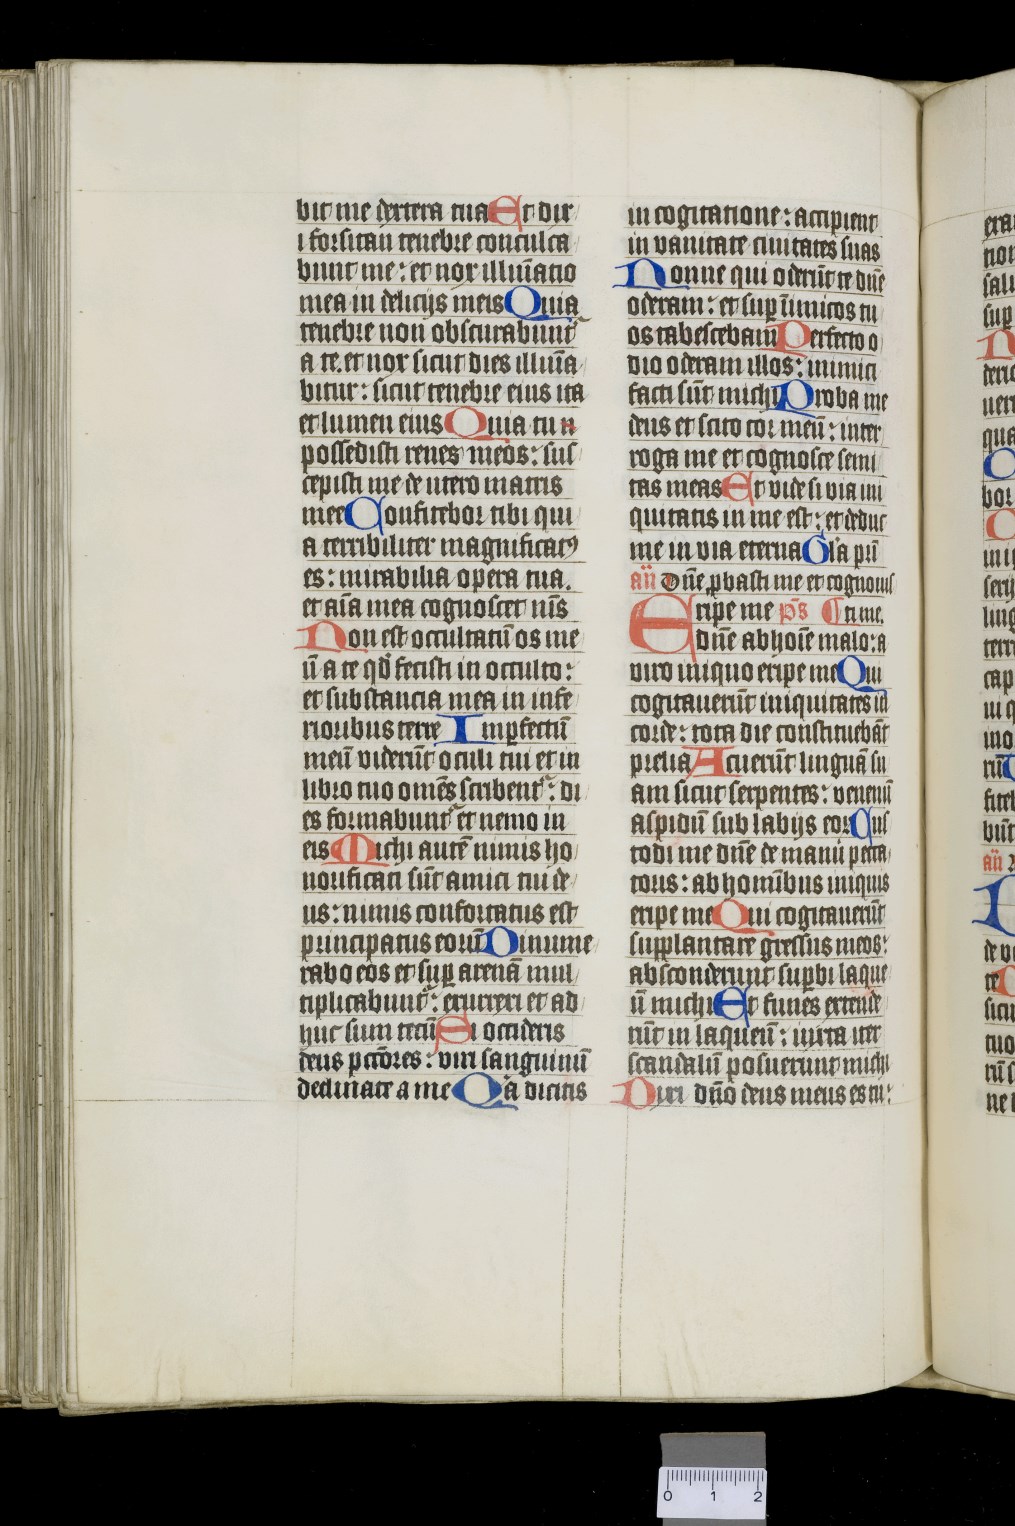 bit me dextera tua Et dix
i forsitan tenebre conculca
bunt me : et nox illuīatio
mea in delicijs meis Quia
tenebre non obscurabunt᷑
a te. et nox sicut dies illuīa
bitur : sicut tenebre eius ita
et lumen eius Quia tu
possedisti renes meos : sus
cepisti me de utero matris
mee Confitebor tibi qui
a terribiliter magnificatꝰ
es : mirabilia opera tua.
et aīa mea cognoscet nīs
Non est occultatū os me
ū a te qd̄ fecisti in occulto :
et substancia mea in infe
rioribus terre Imperfectū
meū viderūt oculi tui et in
libro tuo omēs scribent᷑ : di
es formabunt᷑ et nemo in
eis Michi autē nimis ho
norificati sūt amici tui de
us : nimis confortatus est
principatus eorū Dinume
rabo eos et suꝑ arenā mul
tiplicabunt᷑ : exurrexi et ad
huc sum tecū Si occideris
deus pcc̄ores : viri sanguinū
declinate a me Qa dicitis
in cogitatione : accipient
in vanitate ciuitates suas
Nonne qui oderūt te dn̄e
oderam : et suꝑ īimicos tu
os tabescebam Perfecto o
dio oderam illos : inimici
facti sūt michi Proba me
deus et scito cor meū : inter
roga me et cognosce semi
tas meas Et vide si via ini
quitatis in me est : et deduc
me in via eterna Gl'a pr̄i
an̄ Dn̄e ꝓbasti me et cognouis
Eripe me ps̄ ti me.
dn̄e ab hoīe malo : a
viro iniquo eripe me Qui
cogitauerūt iniquitates in
corde : tota die constituebāt
prelia Acuerūt linguā su
am sicut serpentes : venenū
aspidū sub labijs eor Cus
todi me dn̄e de manu pecca
toris : ab homībus iniquis
eripe me Qui cogitauerūt
supplantare gressus meos :
absconderunt suꝑbi laque
ū michi Et funes extende
rūt in laqueū : iuxta iter
scandalū posuerunt michi
Dixi dn̄o deus meus es tu :